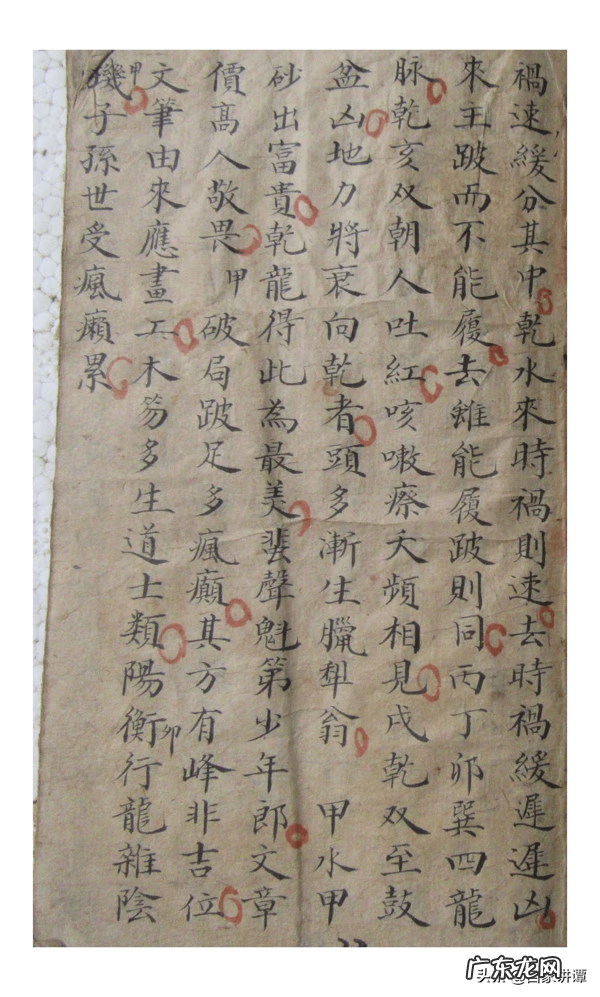 禍速緩分其中乾水來時禍則速去時禍緩遲遲凶
來主跛而不能履去雖能履跛則同丙丁卯巽四龍
脉乾亥双朝人吐紅咳嗽瘵夭頻相見戌乾双至鼓
盆凶地力將衰向乾者頭多漸生臘犁翁 甲水甲
砂出富貴乾龍得此為最美蜚聲魁第少年郎文章
價高人敬畏甲破局跛足多瘋癲其方有峰非吉位
文筆由來應畫工木笏多生道士類陽衡行龍雜陰
璣子孫世受瘋癩累
甲
卯
广东龙网
头条 @百家讲谭